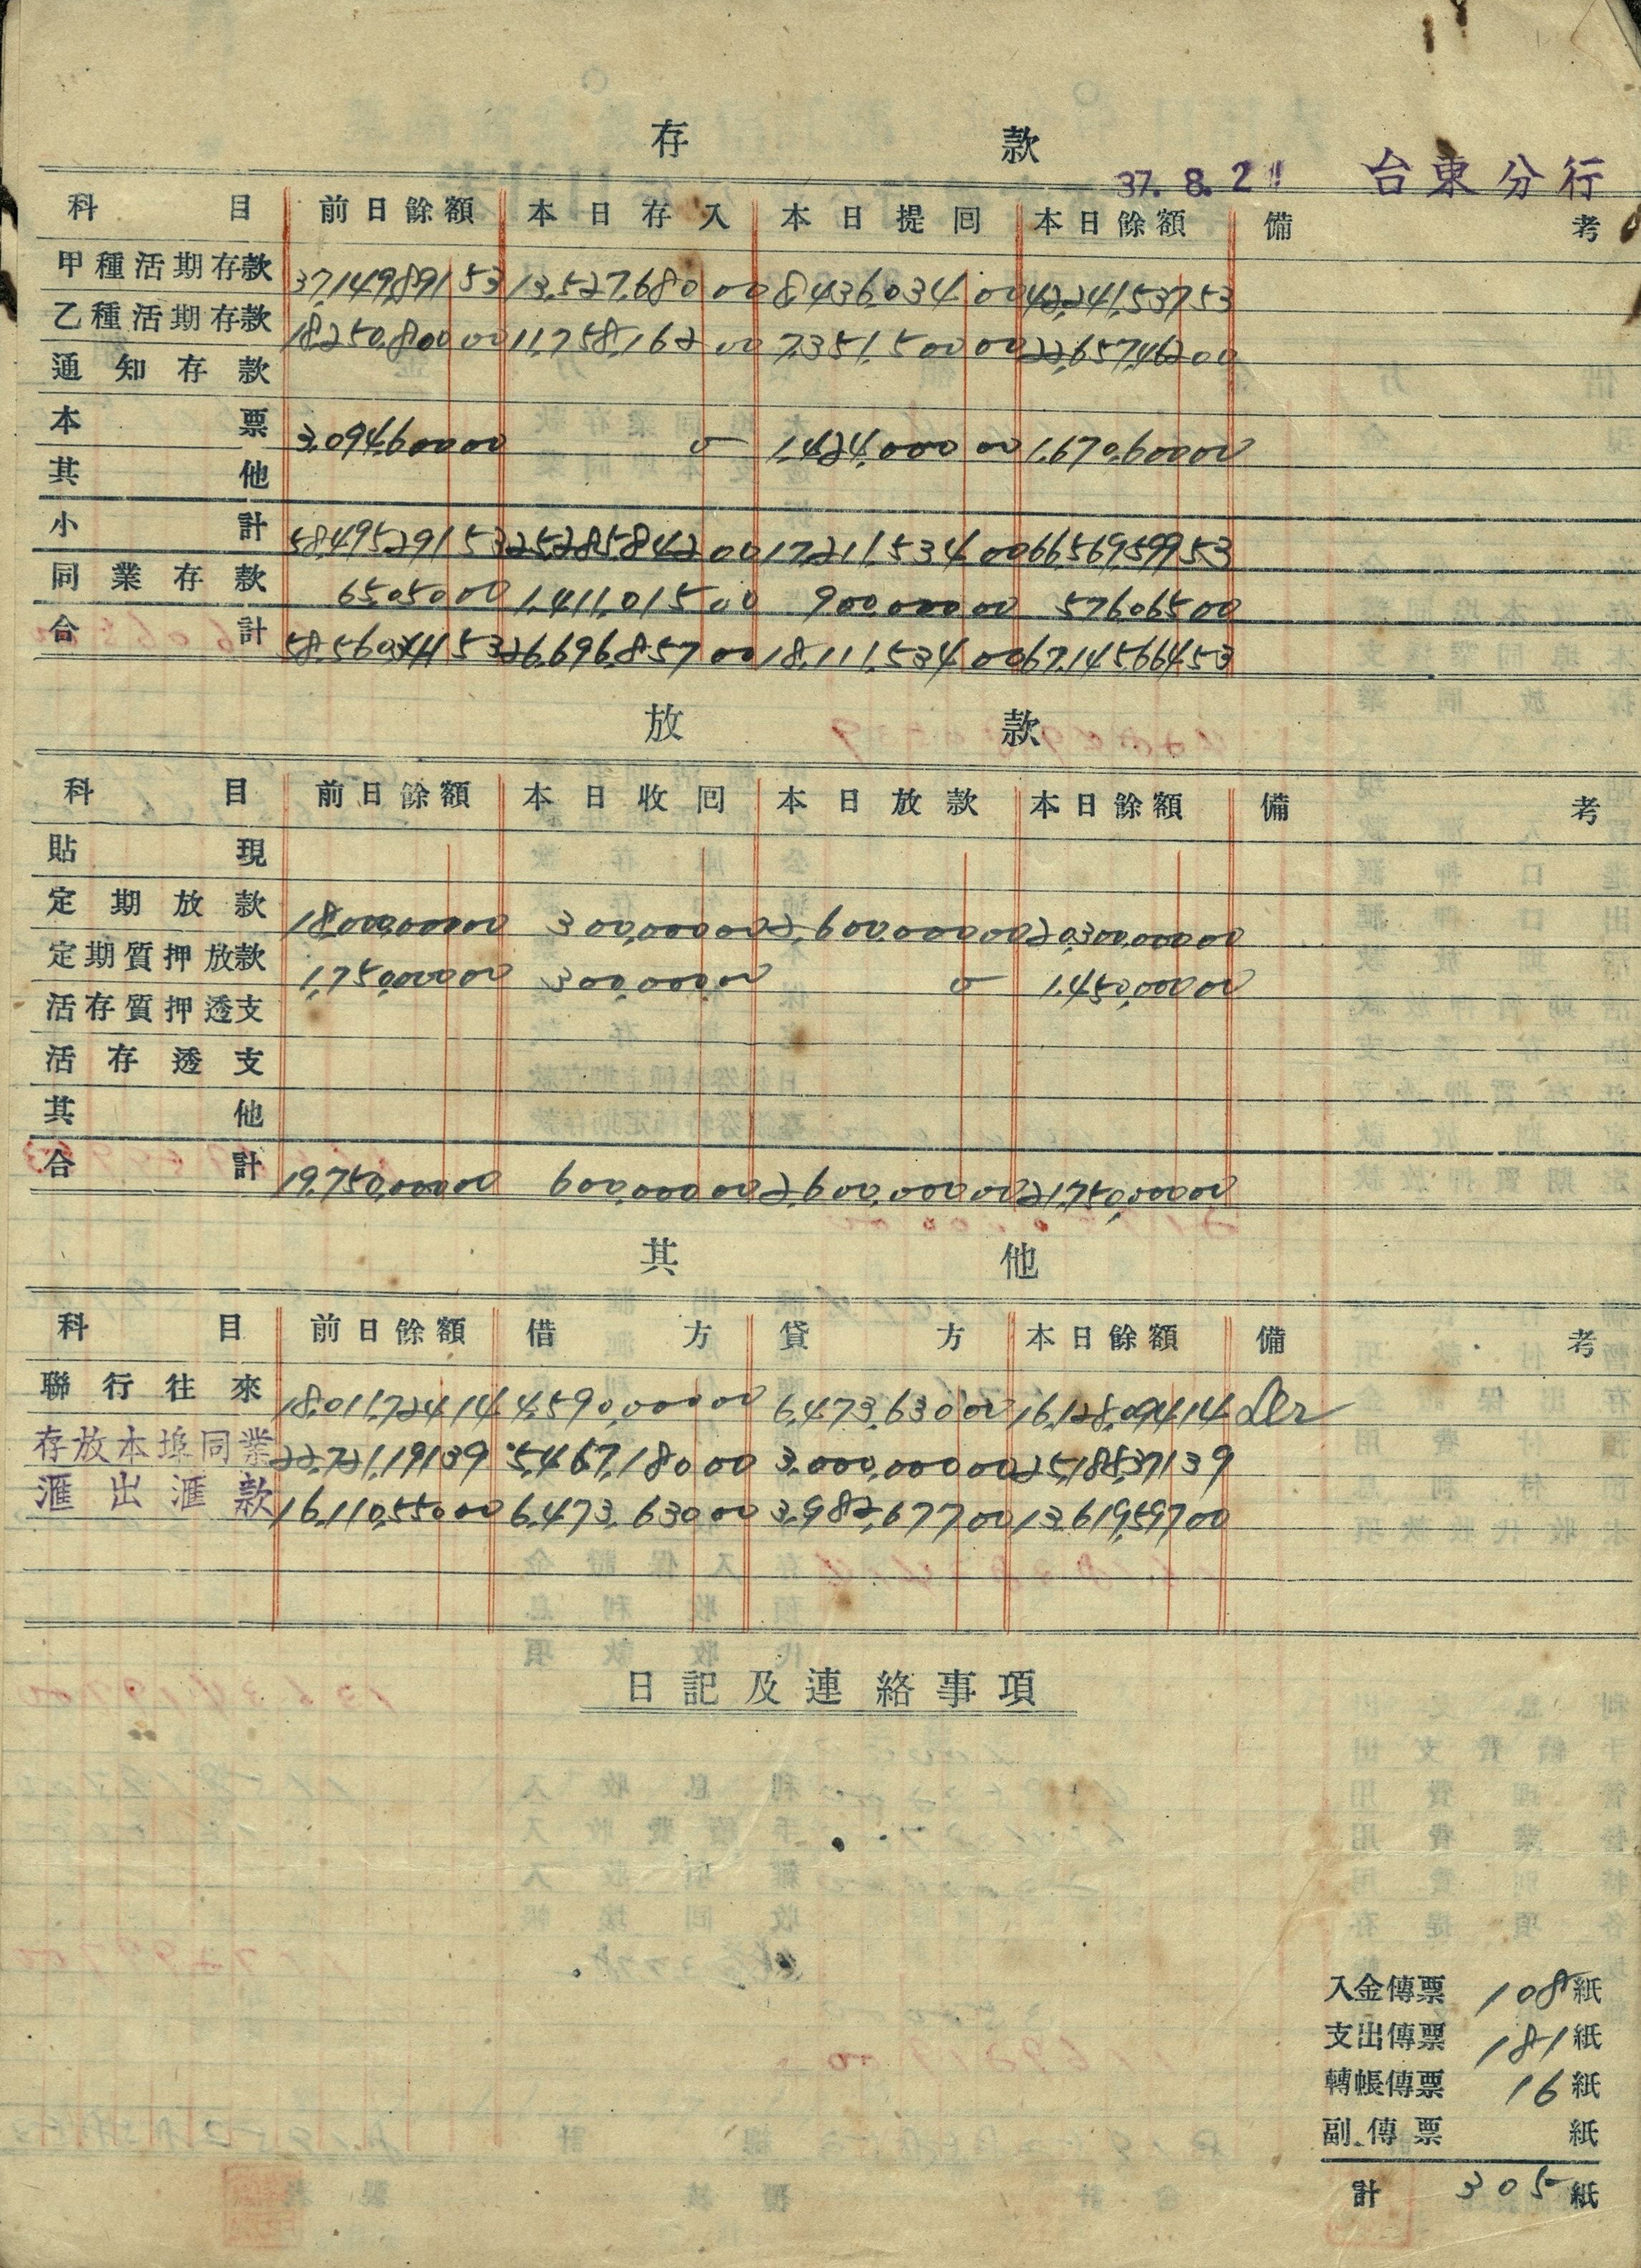 存款
37. 8. 21 台東分行
科目 前日餘額 本日存入 本日提囘 本日餘額 備考
甲種活期存款 37,149,891 53 13,527,680 00 8,436,034 00 42,241,537 53
乙種活期存款 18,250,800 00 11,758,162 00 7,351,500 00 22,657,462 00
通知存款
本票 3,094,600 00 0 1,424,000 00 1,670,600 00
其他
小計 58,495,291 53 25,285,842 00 17,211,534 00 66,569,599 53
同業存款 65,050 00 1,411,015 00 900,000 00 576,065 00
合計 58,560,341 53 26,696,857 00 18,111,534 00 67,145,664 53
放款
科目 前日餘額 本日收囘 本日放款 本日餘額 備考
貼現
定期放款 18,000,000 00 300,000 00 2,600,000 00 20,300,000 00
定期質押放款 1,750,000 00 300,000 00 0 1,450,000 00
活存質押透支
活存透支
其他
合計 19,750,000 00 600,000 00 2,600,000 00 21,750,000 00
其他
科目 前日餘額 借方 貸方 本日餘額 備考
聯行往來 18,011,724 14 4,590,000 00 6,473,630 00 16,128,094 14 Dr
存放本埠同業 22,721,191 39 5,467,180 00 3,000,000 00 25,188,371 39
滙出滙款 16,110,550 00 6,473,630 00 3,982,677 00 13,619,597 00
日記及連絡事項
入金傳票 108 紙
支出傳票 181 紙
轉帳傳票 16 紙
副傳票 紙
計 305 紙